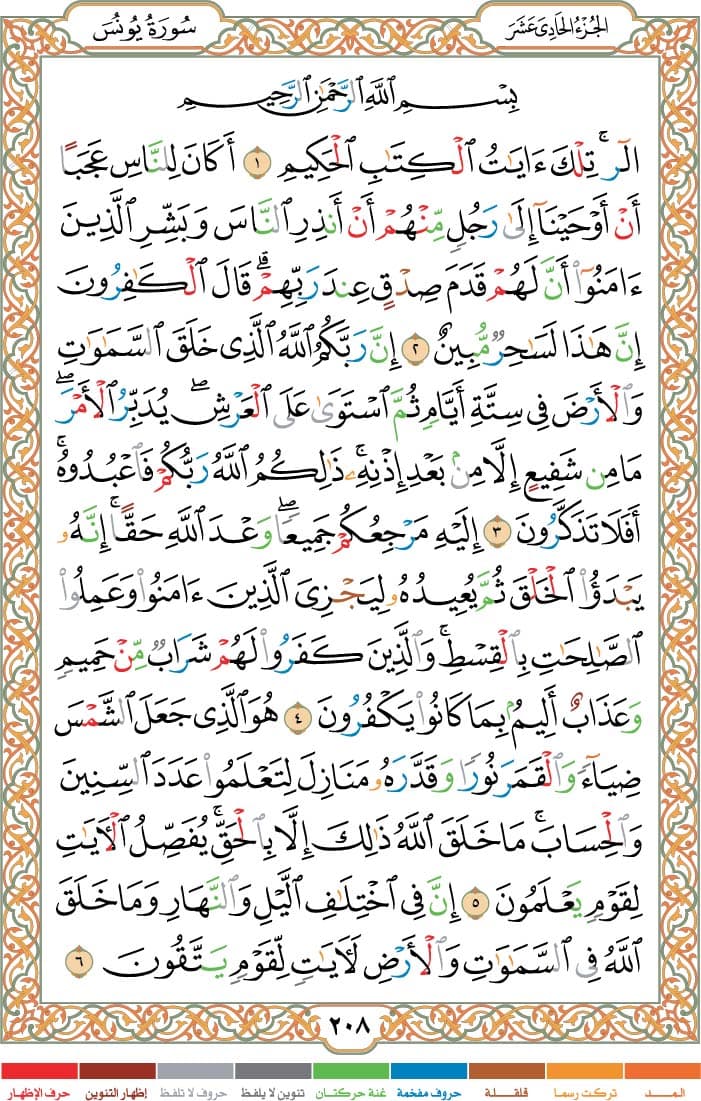 الجُزْءُ الحَادِى عَشَرَ
سُورَةُ يُونُسَ
بِسْمِ ٱللَّهِ ٱلرَّحْمَٰنِ ٱلرَّحِيمِ
الٓر ۚ تِلْكَ ءَايَٰتُ ٱلْكِتَٰبِ ٱلْحَكِيمِ ١ أَكَانَ لِلنَّاسِ عَجَبًا
أَنْ أَوْحَيْنَآ إِلَىٰ رَجُلٍ مِّنْهُمْ أَنْ أَنذِرِ ٱلنَّاسَ وَبَشِّرِ ٱلَّذِينَ
ءَامَنُوٓا۟ أَنَّ لَهُمْ قَدَمَ صِدْقٍ عِندَ رَبِّهِمْ ۗ قَالَ ٱلْكَٰفِرُونَ
إِنَّ هَٰذَا لَسَٰحِرٌ مُّبِينٌ ٢ إِنَّ رَبَّكُمُ ٱللَّهُ ٱلَّذِى خَلَقَ ٱلسَّمَٰوَٰتِ
وَٱلْأَرْضَ فِى سِتَّةِ أَيَّامٍ ثُمَّ ٱسْتَوَىٰ عَلَى ٱلْعَرْشِ ۖ يُدَبِّرُ ٱلْأَمْرَ ۖ
مَا مِن شَفِيعٍ إِلَّا مِنۢ بَعْدِ إِذْنِهِۦ ۚ ذَٰلِكُمُ ٱللَّهُ رَبُّكُمْ فَٱعْبُدُوهُ ۚ
أَفَلَا تَذَكَّرُونَ ٣ إِلَيْهِ مَرْجِعُكُمْ جَمِيعًا ۖ وَعْدَ ٱللَّهِ حَقًّا ۚ إِنَّهُۥ
يَبْدَؤُا۟ ٱلْخَلْقَ ثُمَّ يُعِيدُهُۥ لِيَجْزِىَ ٱلَّذِينَ ءَامَنُوا۟ وَعَمِلُوا۟
ٱلصَّٰلِحَٰتِ بِٱلْقِسْطِ ۚ وَٱلَّذِينَ كَفَرُوا۟ لَهُمْ شَرَابٌ مِّنْ حَمِيمٍ
وَعَذَابٌ أَلِيمٌۢ بِمَا كَانُوا۟ يَكْفُرُونَ ٤ هُوَ ٱلَّذِى جَعَلَ ٱلشَّمْسَ
ضِيَآءً وَٱلْقَمَرَ نُورًا وَقَدَّرَهُۥ مَنَازِلَ لِتَعْلَمُوا۟ عَدَدَ ٱلسِّنِينَ
وَٱلْحِسَابَ ۚ مَا خَلَقَ ٱللَّهُ ذَٰلِكَ إِلَّا بِٱلْحَقِّ ۚ يُفَصِّلُ ٱلْءَايَٰتِ
لِقَوْمٍ يَعْلَمُونَ ٥ إِنَّ فِى ٱخْتِلَٰفِ ٱلَّيْلِ وَٱلنَّهَارِ وَمَا خَلَقَ
ٱللَّهُ فِى ٱلسَّمَٰوَٰتِ وَٱلْأَرْضِ لَءَايَٰتٍ لِّقَوْمٍ يَتَّقُونَ ٦
٢٠٨
المـــد تركت رسما قلقـلة حروف مفخمة غنة حركتان تنوين لا يلفظ حروف لا تلفظ إظهار التنوين حرف الإظهار